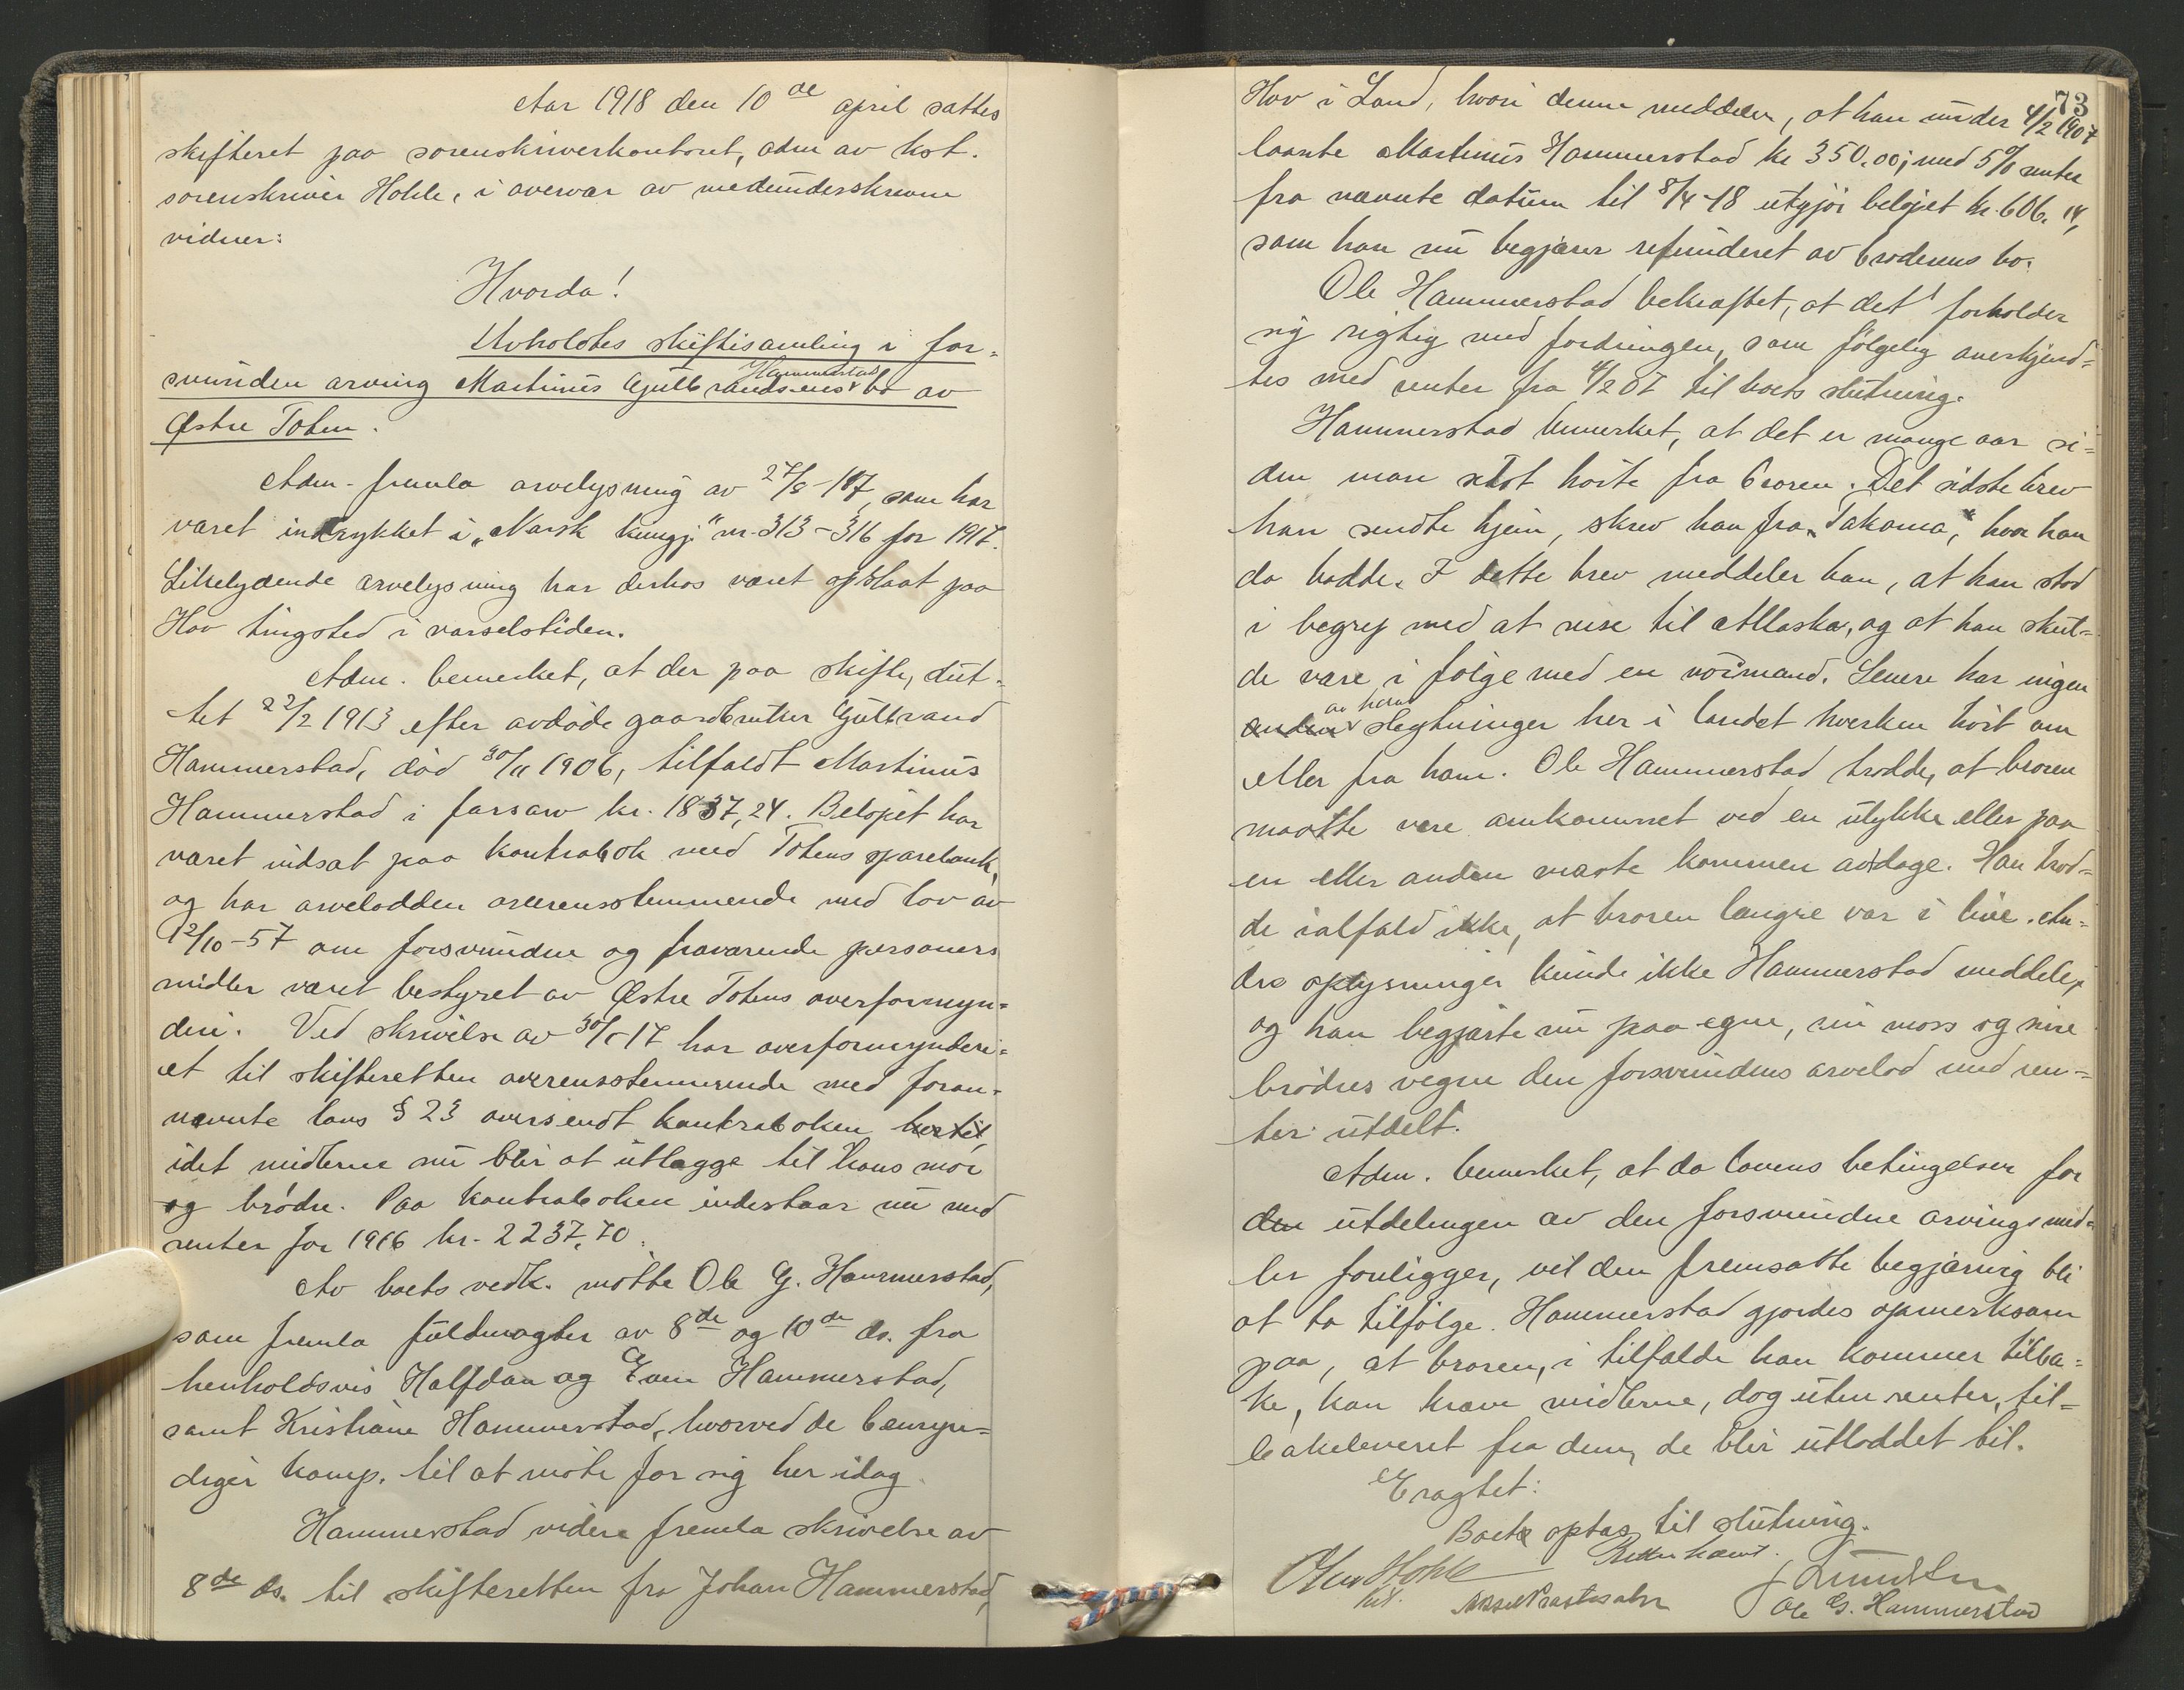 Aar 1918 den 10de april sattes
skifteret paa sorenskriverkontoret, adm av kst.
sorenskriver Hohle, i overvær av medunderskrevne
vidner:
Hvorda!
Avholdtes skiftesamling i for-
svunden arving Martinus Gulbrandsens Hammerstad bo av
Østre Toten.
Adm. fremla arvelysning av 27/8-17, som har
været indrykket i „Norsk kungj" nr. 313-316 for 1917.
Likelydende arvelysning har derhos været opslaat paa
Hov tingsted i varselstiden.
Adm. bemerket, at der paa skifte, slut-
tet 22/2 1913 efter avdøde gaardbruker Gulbrand
Hammerstad, död 30/11 1906, tilfaldt Martinus
Hammerstad i farsarv kr. 1837,24. Beløpet har
været indsat paa kontrabok med Totens sparebank,
og har arvelodden overensstemmende med lov av
12/10-57 om forsvundne og fraværende personers
midler været bestyret av Østre Totens overformyn-
deri. Ved skrivelse av 30/-17 har overformynderi-
et til skifteretten overensstemmende med foran-
nævnte lovs § 23 oversendt kontraboken hertil,
idet midlerne nu blir at utlægge til hans mor
og brödre. Paa kontraboken indestaar nu med
renter for 1916 kr. 2237,70.
Av boets vedk. mötte Ole G. Hammerstad,
som fremla fuldmagter av 8de og 10de ds. fra
henholdsvis Halfdan og Even Hammerstad,
samt Kristiane Hammerstad, hvorved de bemyn-
diger komp. til at möte for sig her idag.
Hammerstad videre fremla skrivelse av
8de ds. til skifteretten fra Johan Hammerstad,
73
Hov i Land, hvori denne meddeler, at han under 4/2 1907
laante Martinus Hammerstad kr 350,00; med 5% renter
fra nævnte datum til 8/4-18 utgjör belöpet kr. 606,14,
som han nu begjærer refunderet av broderens bo.
Ole Hammerstad bekræftet, at det forholder
sig rigtig med fordringen, som fölgelig anerkjend-
tes med renter fra 4/2 07 til boets slutning.
Hammerstad bemerket, at det er mange aar si-
den man sidst hörte fra broren. Det sidste brev
han sendte hjem, skrev han fra „Takoma," hvor han
da bodde. I dette brev meddeler han, at han stod
i begrep med at reise til Allaska, og at han skul-
de være i fölge med en normand. Senere har ingen
anden av hans slegtninger her i landet hverken hört om
eller fra ham. Ole Hammerstad trodde, at broren
maatte være omkommet ved en ulykke eller paa
en eller anden maate kommen av dage. Han trod-
de ialfald ikke, at broren længre var i live. An-
dre oplysninger kunde ikke Hammerstad meddele,
og han begjærte nu paa egne, sin mors og sine
brödres vegne den forsvundens arvelod med ren-
ter utdelt.
Adm. bemerket, at da lovens betingelser for
den utdelingen av den forsvundne arvings mid-
ler foreligger, vil den fremsatte begjæring bli
at ta tilfölge. Hammerstad gjordes opmerksom
paa, at broren, i tilfælde han kommer tilba-
ke, kan kræve midlerne, dog uten renter, til-
bakeleveret fra dem, de blir utloddet til.
Eragtet:
Boet optas til slutning.
Retten hævet.
Hohle
kst.
Ole G. Hammerstad